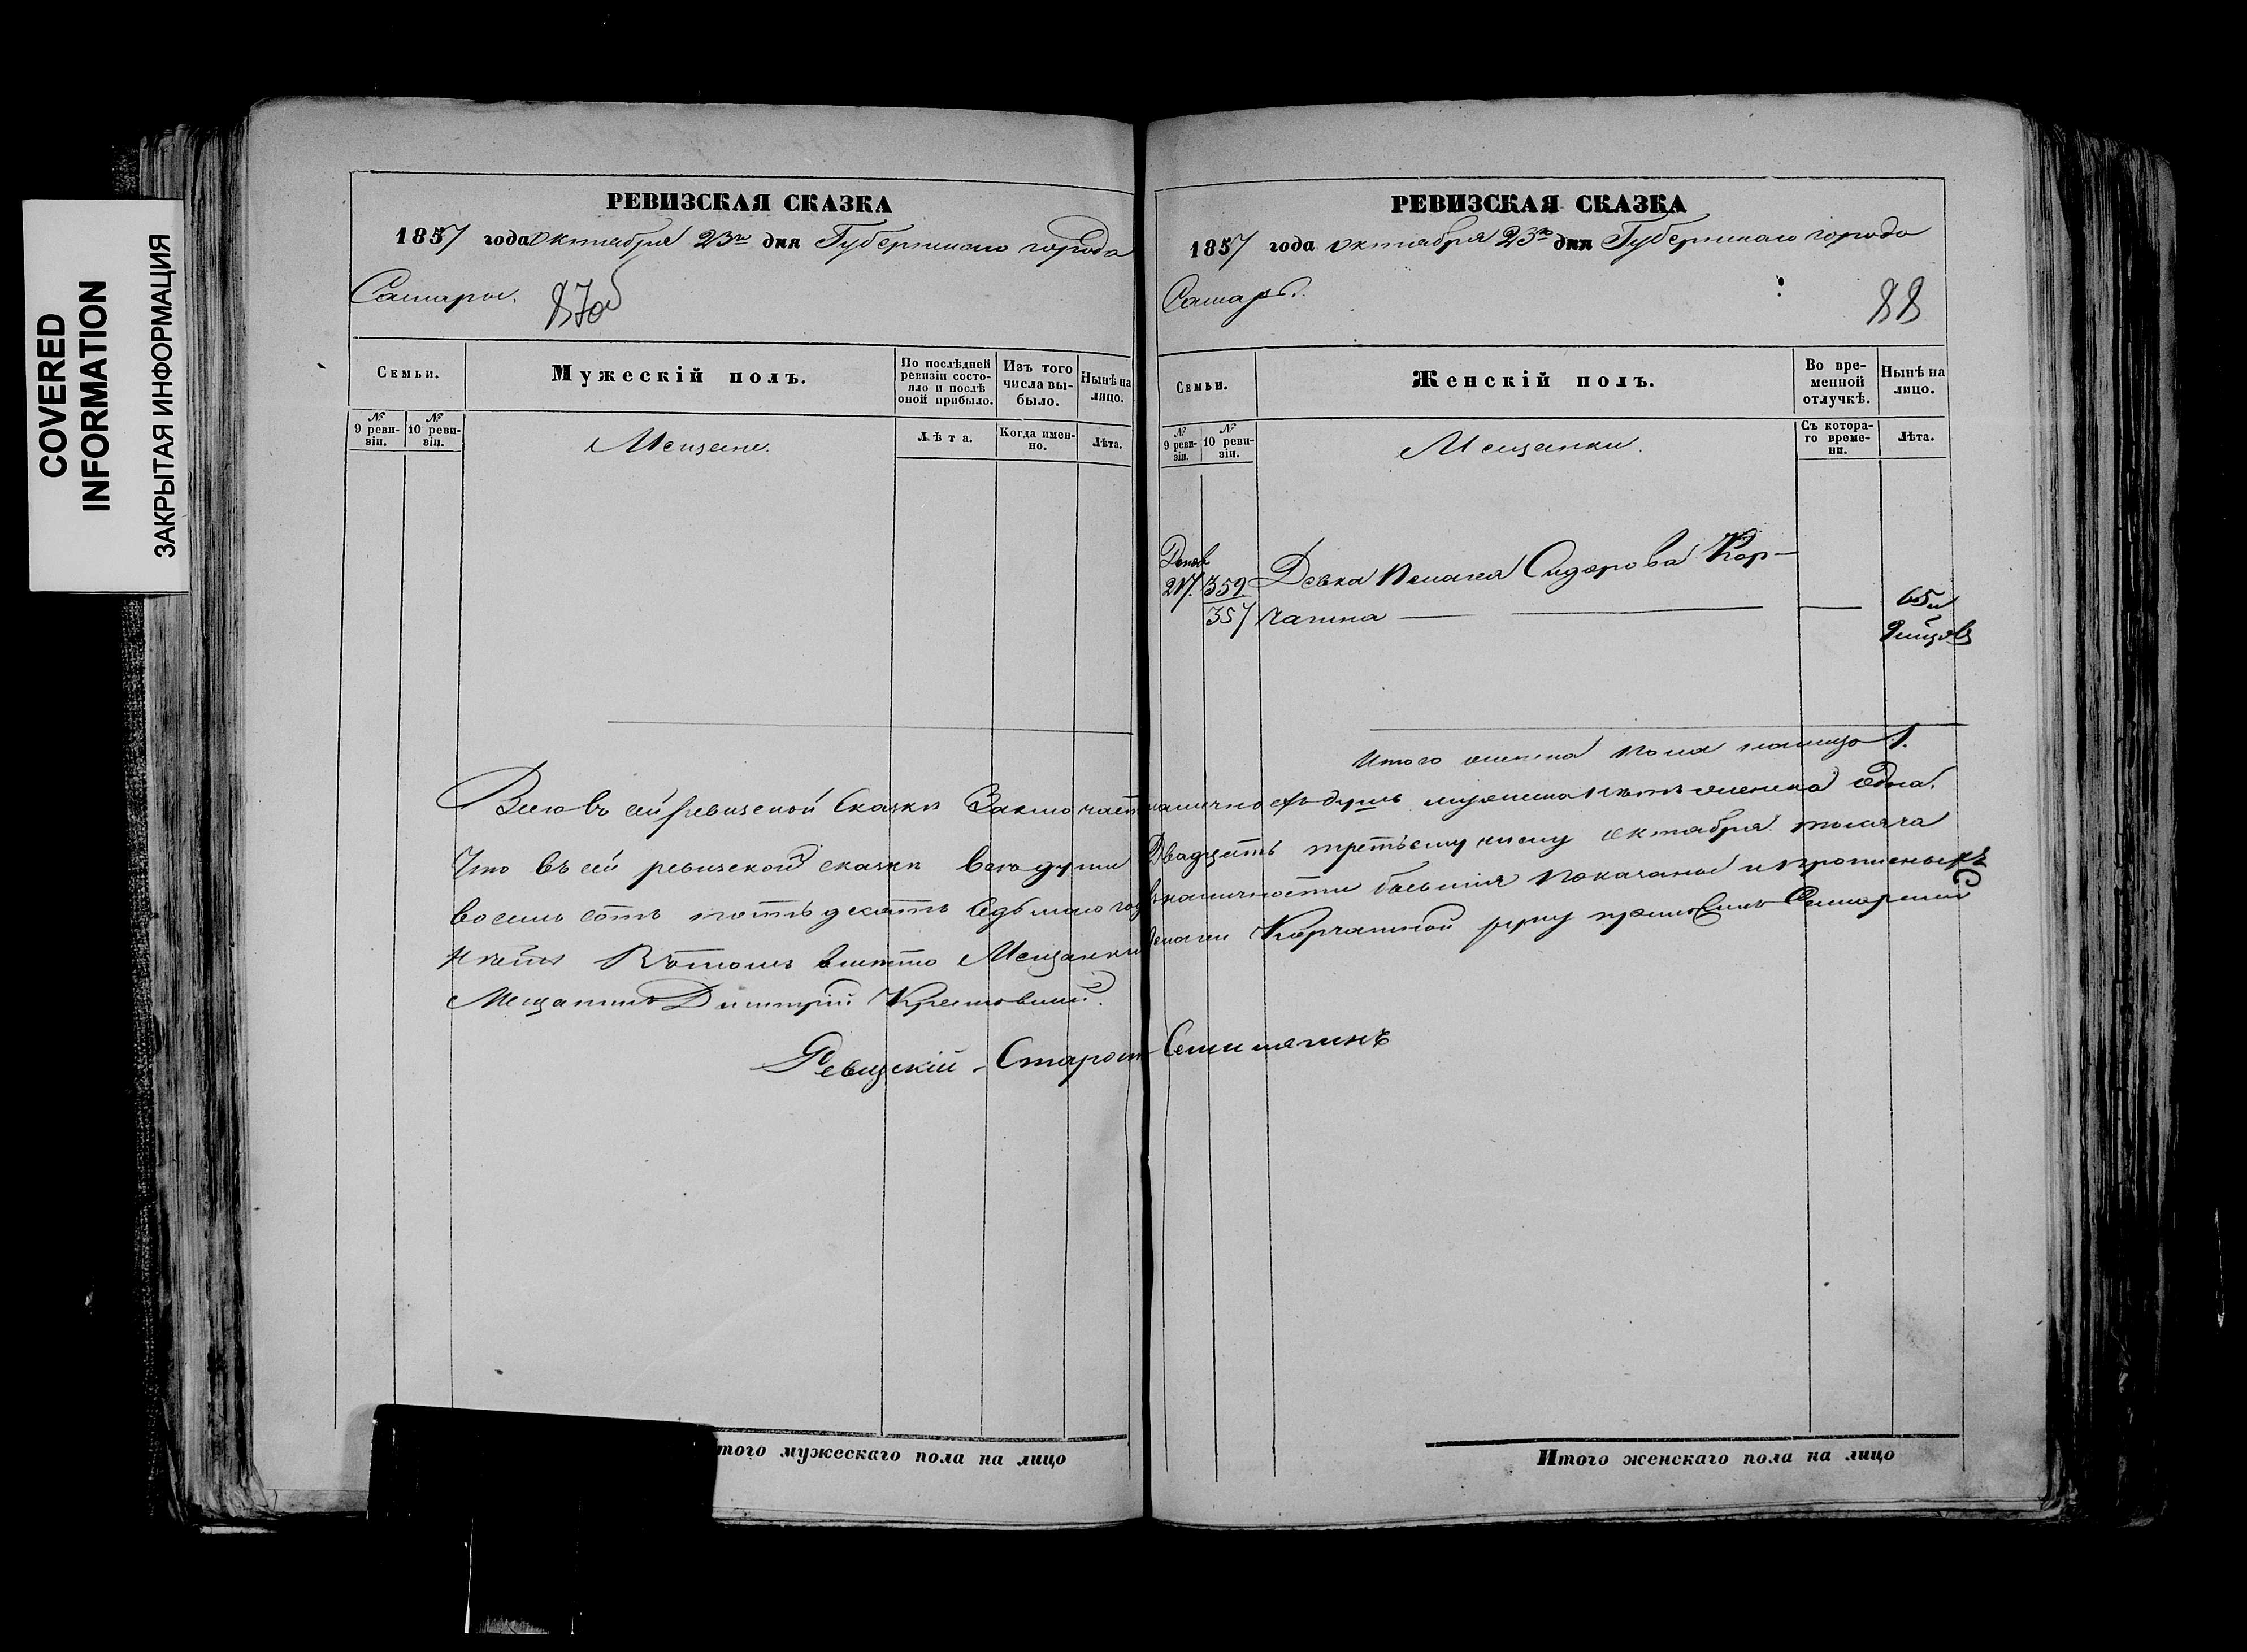 COVERED
INFORMATION
ЗАКРЫТАЯ ИНФОРМАЦИЯ
РЕВИЗСКАЯ СКАЗКА
1857 года октября 23го дня Губернскаго города
Самары.
87об
Семьи.
Мужескій полъ.
По послѣдней ревизіи состояло и послѣ оной прибыло.
Изъ того числа выбыло.
Нынѣ на лицо.
№ 9 ревизіи.
№ 10 ревизіи.
Мещане.
Лѣта.
Когда именно.
Лѣта.
РЕВИЗСКАЯ СКАЗКА
1857 года октября 23го дня Губернскаго города
Самары.
88
Семьи.
Женскій полъ.
Во временной отлучкѣ.
Нынѣ на лицо.
№ 9 ревизіи.
№ 10 ревизіи.
Мещанки.
Съ котораго времени.
Лѣта.
217. 359 Девка Пелагея Сидорова Кор-
357 чагина — — 65 и
Итого женска пола налицо 1.
Всего въ сей ревизской сказки Заключает налично душъ мужеска нетъ женска одна.
Что въ сей ревизской сказки все души Двадцать третьему числу октября тысяча
восемь сотъ пятьдесятъ седьмаго года в наличности бывшия показаны и прописныхъ
нетъ Въ томъ вместо Мещанки Пелагеи Корчагиной руку приложилъ Самарский
Мещанинъ Дмитрій
Ревизскій Староста
того мужескаго пола на лицо
Итого женскаго пола на лицо